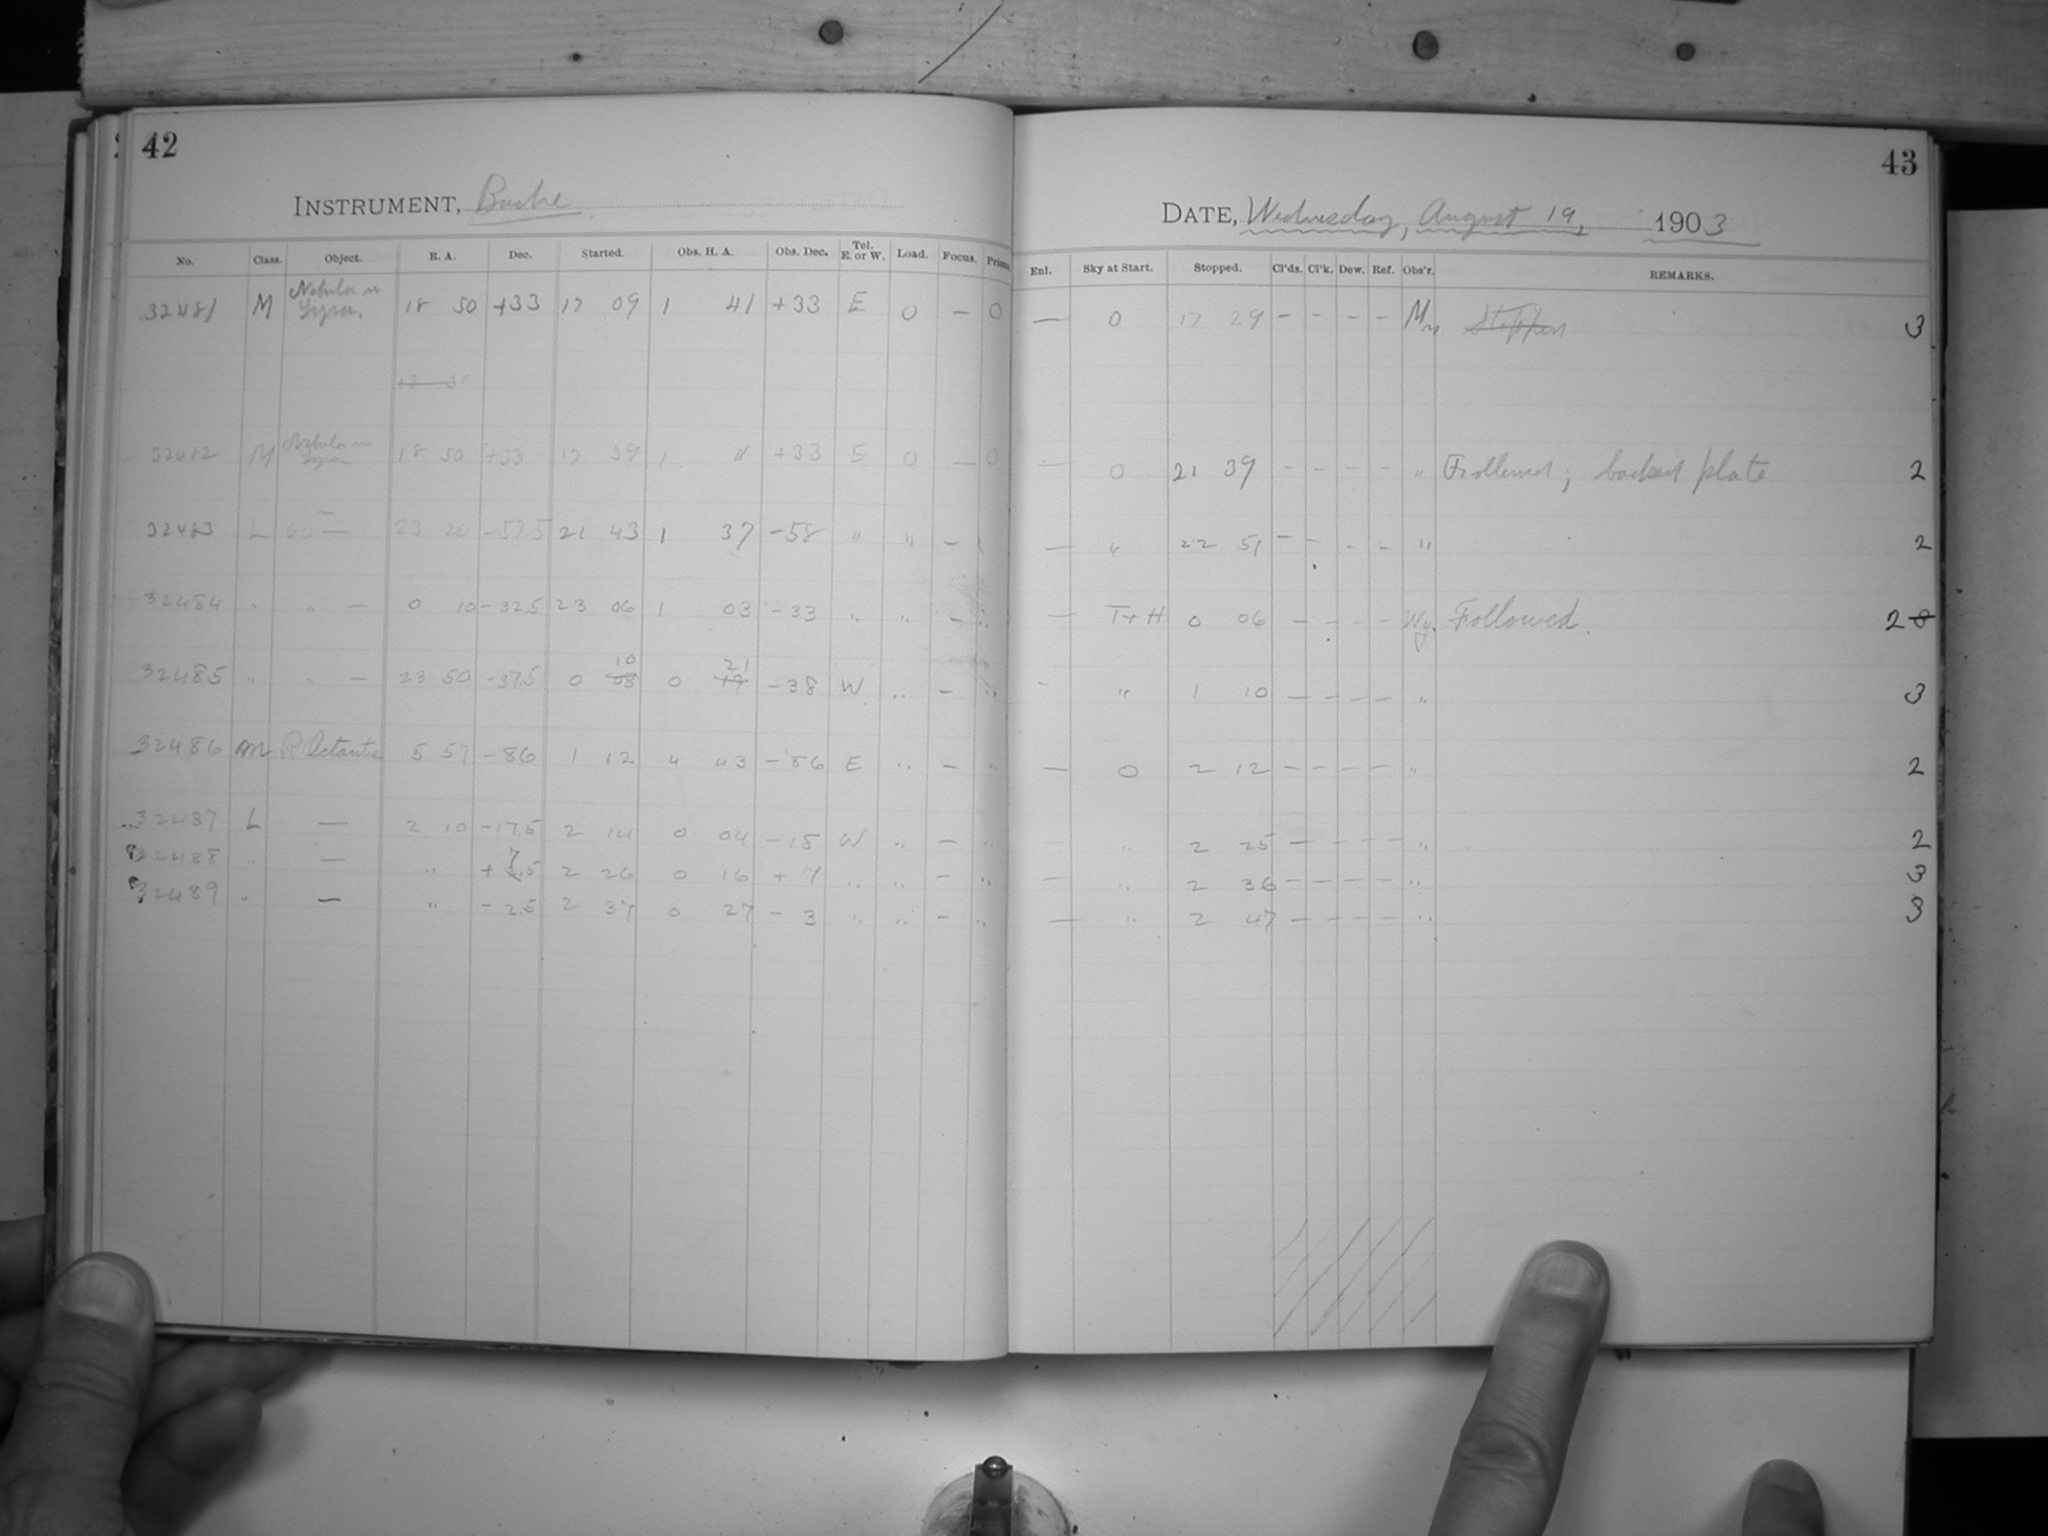 42
INSTRUMENT, Bache
No. Class. Object. R. A. Dec. Started. Obs. H. A. Obs. Dec. Tel. E. or W. Load. Focus. Prism
32481 M Nebula in Lyra. 18 50 +33 17 09 1 41 +33 E 0 — 0
M Nebula in Lyra 18 50 +33 17 39 1 " +33 E 0 — 0
32483 L 60m — 23 20 -57.5 21 43 1 37 -58 " " —
32484 " " — 0 10 -32.5 23 06 1 03 -33 " " — "
32485 " " — 23 50 -37.5 0 10 08 0 21 19 -38 W " — "
32486 M R Octantis 5 57 -86 1 12 4 43 -86 E " — "
32487 L — 2 10 -17.5 2 14 0 04 -18 W " — "
32488 " — " +7.5 2 26 0 16 +7 " " — "
32489 " — " -2.5 2 37 0 27 -3 " " — "
43
DATE, Wednesday, August 19, 1903
Enl. Sky at Start. Stopped. Cl'ds. Cl'k. Dew. Ref. Obs'r. REMARKS.
— 0 17 29 - - - - 3
— 0 21 39 - - - - " Followed; backed plate 2
— " 22 51 - - - - " 2
— T+H 0 06 - - - - Wy. Followed. 2 8
- " 1 10 — — — — " 3
— 0 2 12 — — — — " 2
— " 2 25 — — — — " 2
— " 2 36 — — — — " 3
— " 2 47 — — — — " 3